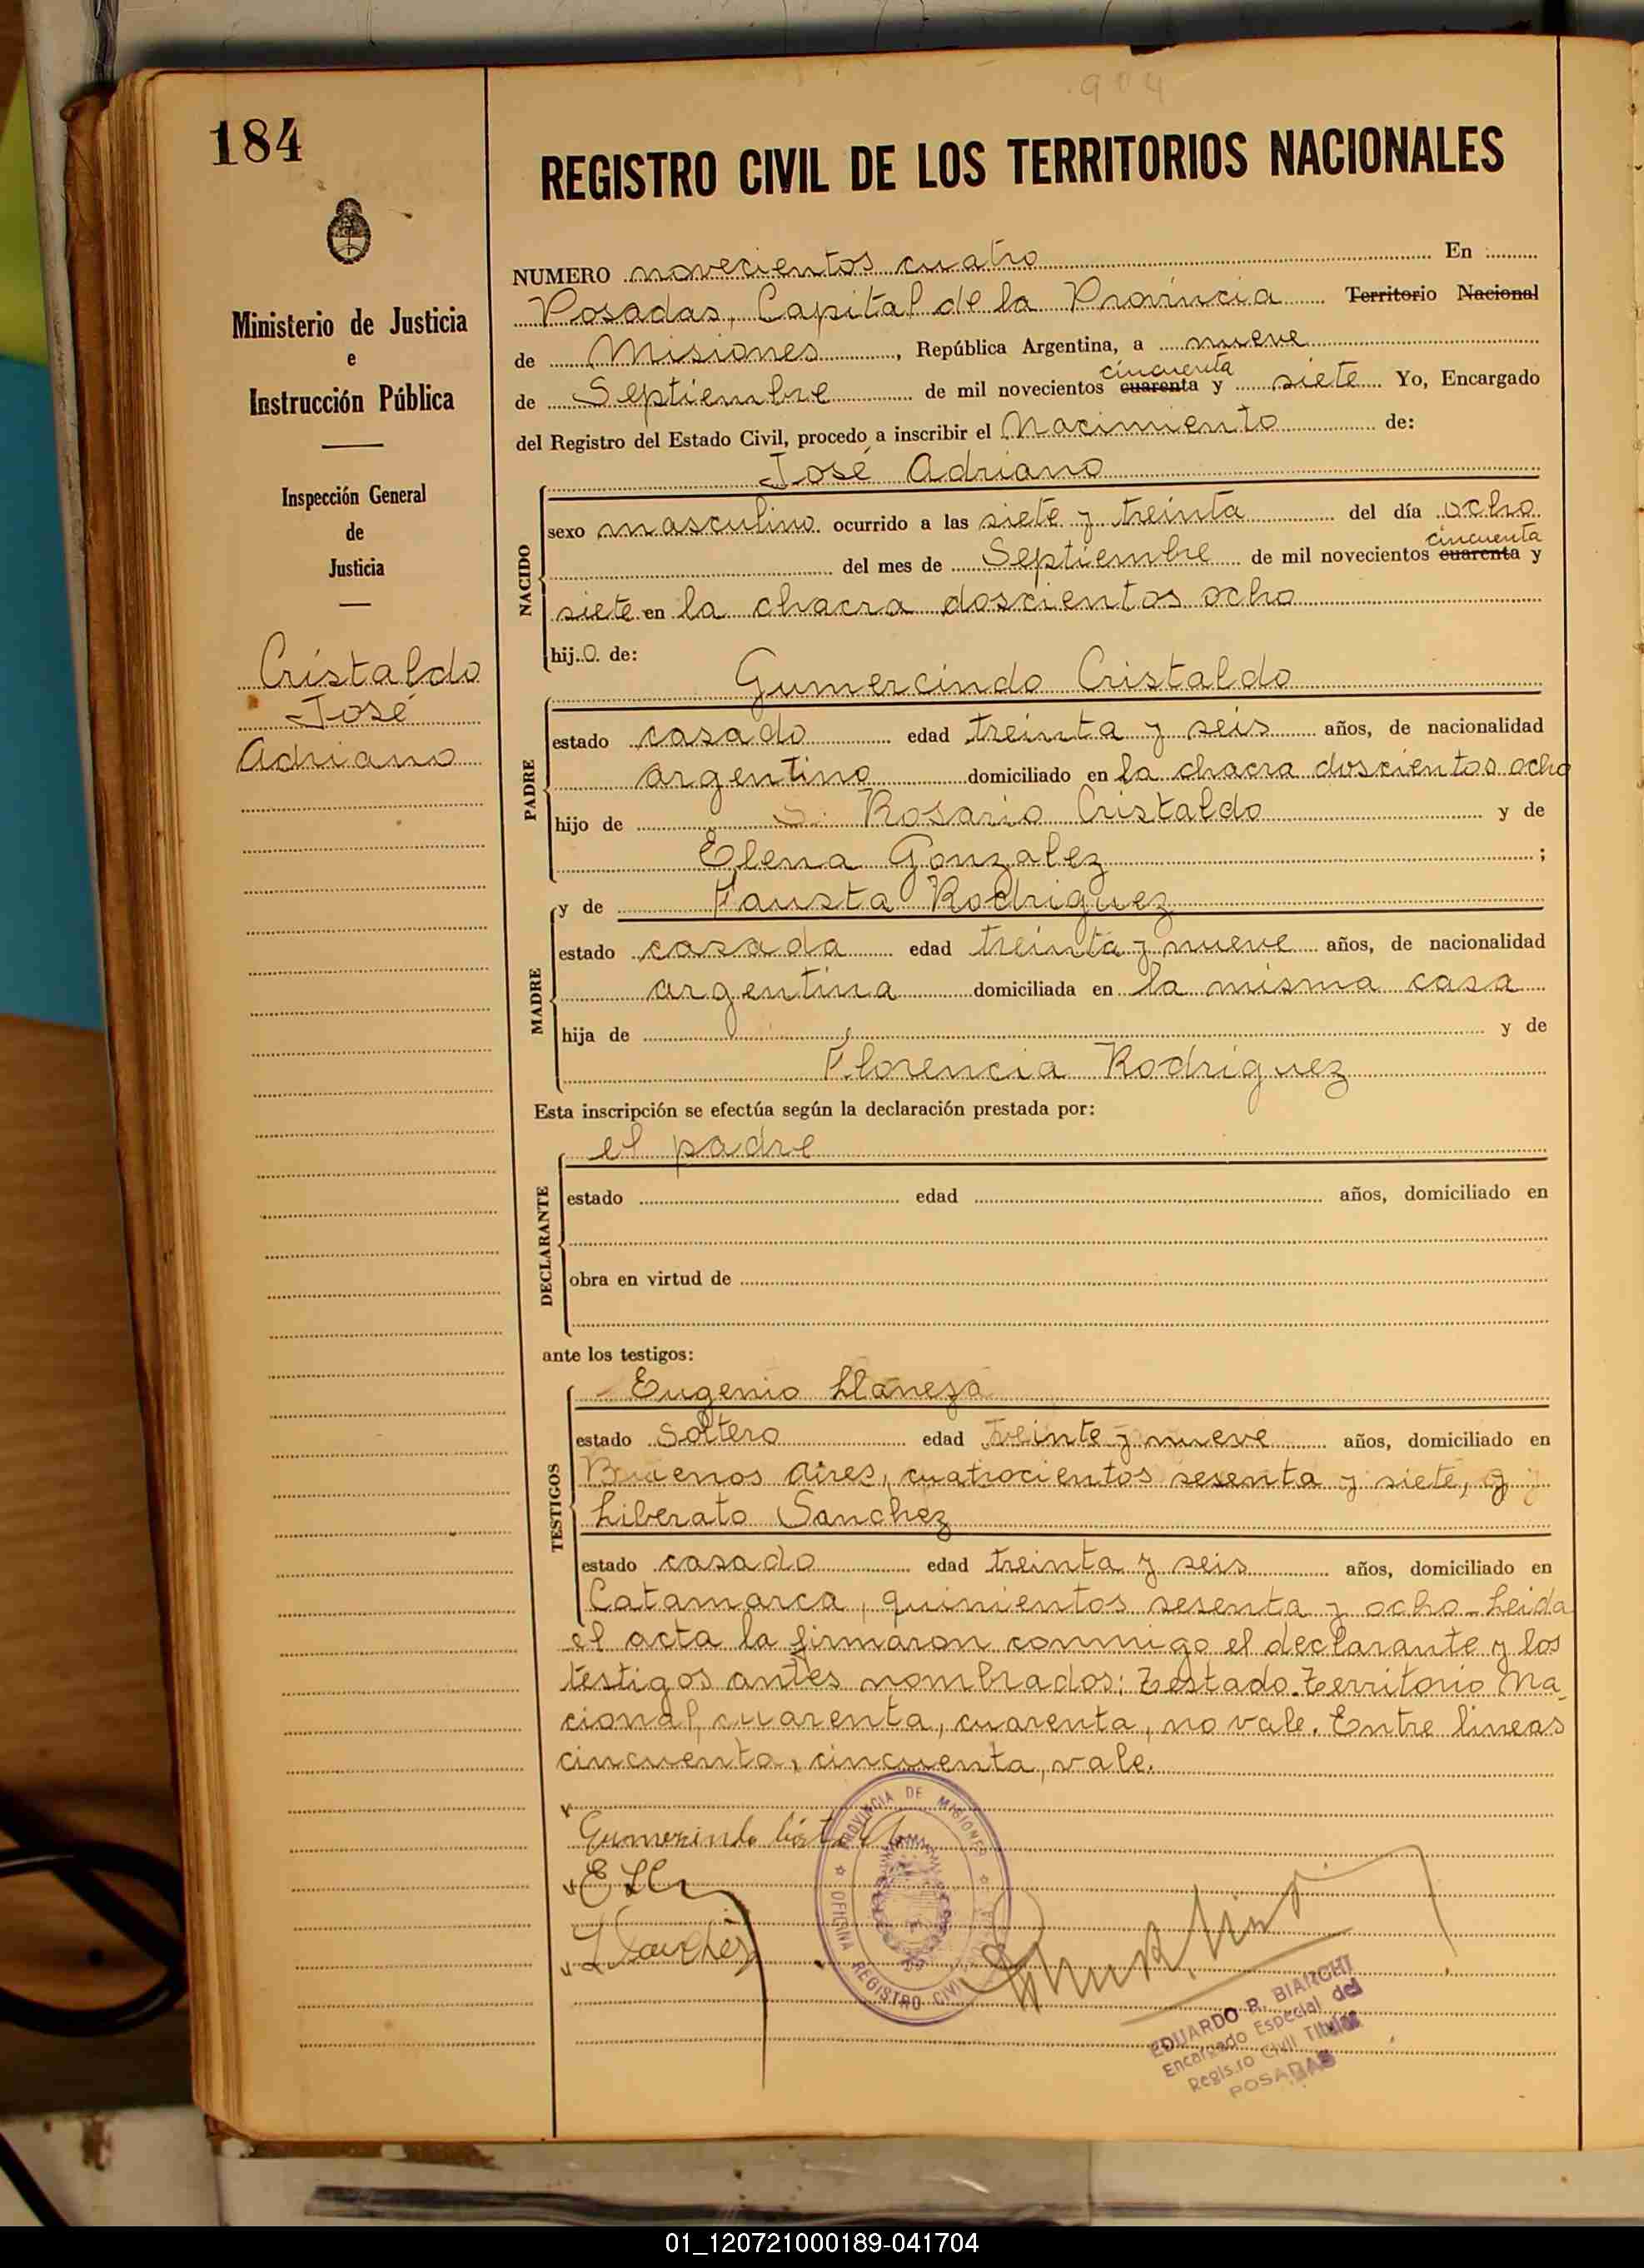 904
184
REGISTRO CIVIL DE LOS TERRITORIOS NACIONALES
Ministerio de Justicia
e
Instrucción Pública
Inspección General
de
Justicia
Cristaldo
José
Adriano
NUMERO novecientos cuatro En
Posadas, Capital de la Provincia Territorio Nacional
de Misiones, República Argentina, a nueve
cincuenta
de Septiembre de mil novecientos cuarenta y siete Yo, Encargado
del Registro del Estado Civil, procedo a inscribir el Nacimiento de:
José Adriano
NACIDO
sexo masculino ocurrido a las siete y treinta del día ocho
cincuenta
del mes de Septiembre de mil novecientos cuarenta y
siete en la chacra doscientos ocho
hijo de:
Gumercindo Cristaldo
PADRE
estado casado edad treinta y seis años, de nacionalidad
argentino domiciliado en la chacra doscientos ocho
hijo de Rosario Cristaldo y de
Elena Gonzalez ;
y de Fausta Rodriguez
MADRE
estado casada edad treinta y nueve años, de nacionalidad
argentina domiciliada en la misma casa
hija de y de
Florencia Rodriguez
Esta inscripción se efectúa según la declaración prestada por:
el padre
DECLARANTE
estado edad años, domiciliado en
obra en virtud de
ante los testigos:
Eugenio Llaneza
TESTIGOS
estado soltero edad y nueve años, domiciliado en
Buenos Aires, cuatrocientos sesenta y siete, y
Liberato Sanchez
estado casado edad treinta y seis años, domiciliado en
Catamarca, quinientos sesenta y ocho. Leida
el acta la firmaron conmigo el declarante y los
testigos antes nombrados: Testado. Territorio Na-
cional, cuarenta, cuarenta, no vale. Entre lineas
cincuenta, cincuenta, vale.
Gumersindo Cristaldo
E Ll
L Sanchez
PROVINCIA DE MISIONES
OFICINA REGISTRO CIVIL
EDUARDO R. BIANCHI
Encargado Especial del
Registro Civil Titular
POSADAS
01_120721000189-041704